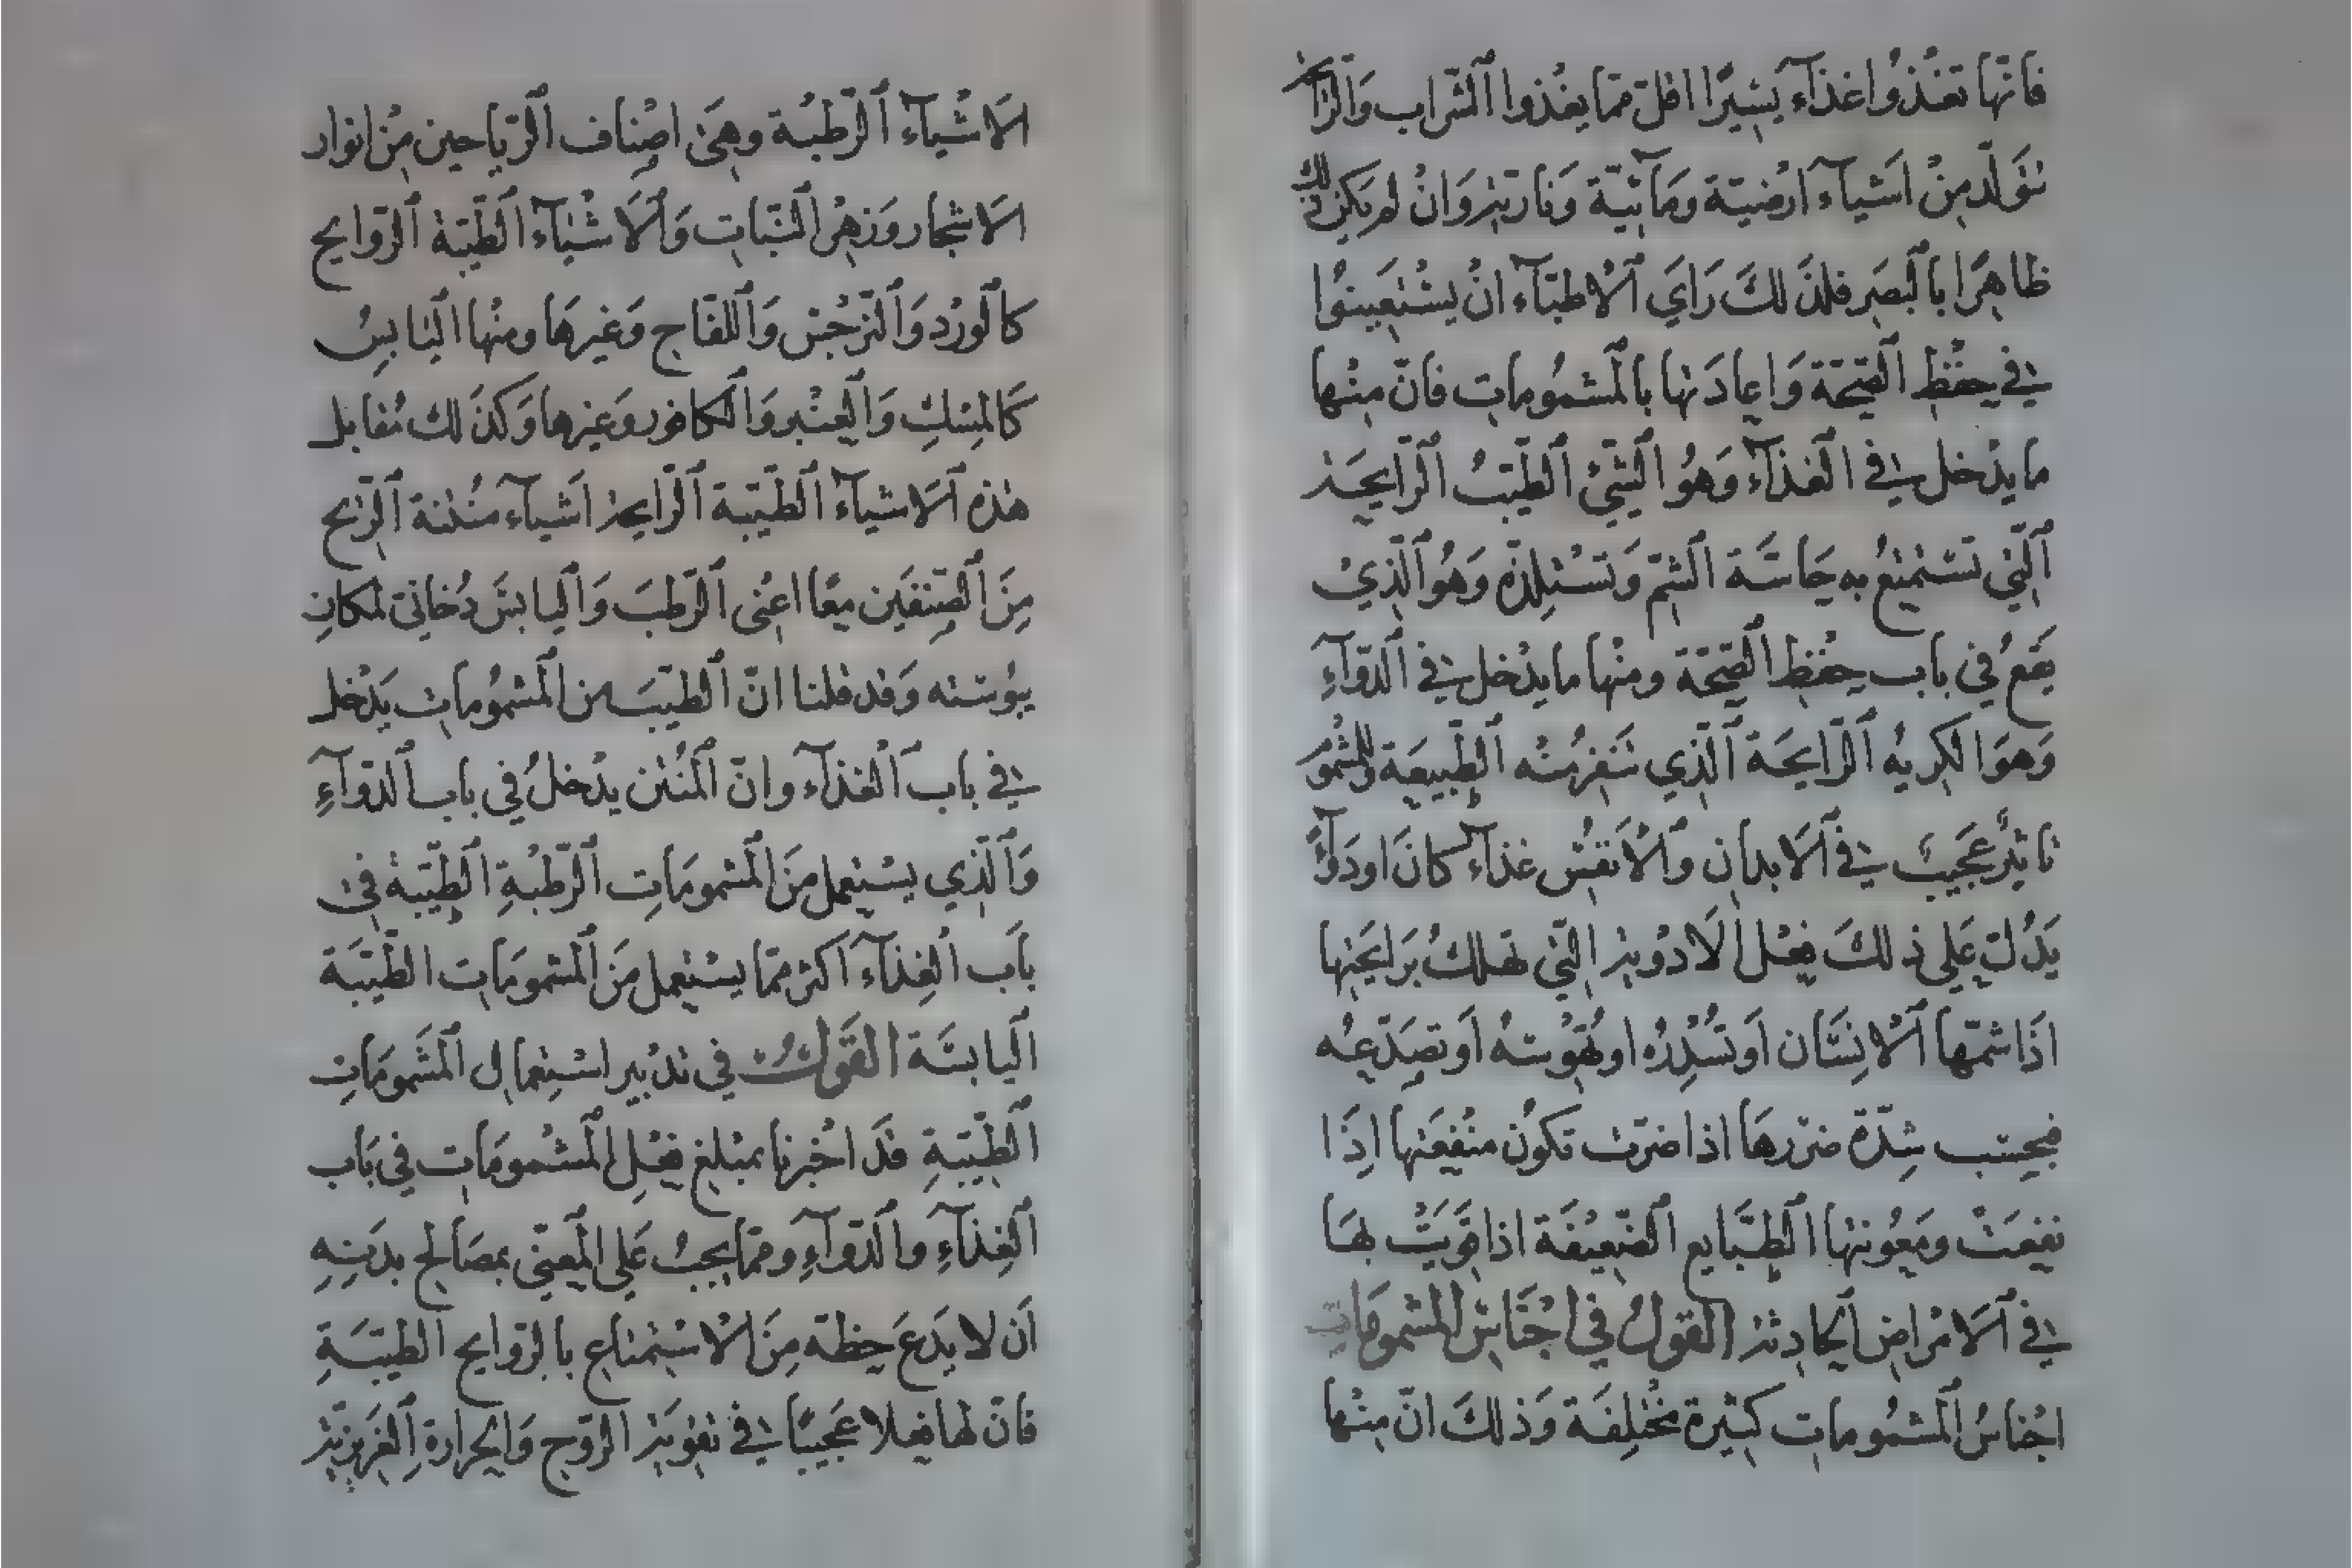 فانّها تغذُوا غذآء يسِيرًا اقلّ ممّا يغذوا الشّراب والرّايحة
تتَولّد مِنْ اَشياء ارْضيّة ومَآئيّة وَناريّة وَانْ لم يكن ذلك
ظاهِرًا بالبَصَر فلذَلكَ رَاىَ الْاطبّاء انْ يسْتعِينوُا
في حِفْظِ الصّحّة وَاعادَتها بالمشمُومات فانّ مِنْها
ما يدْخل في الغذآء وَهوُ الشّئ الطّيّبُ الرّايحَة
الّتي تسْتمْتِعُ به حَاسَّة الشمّ وَتسْتلِذّه وَهوُ الّذِيْ
يقعُ في باب حِفْظِ الصّحّة ومنْها ما يدْخل في الدّوآءِ
وَهوَ الكريهُ الرّايحَة الّذي تَنفرُ مِنْه الطّبيعَة وللمشمُوم
تاثيْرٌ عَجيبٌ في الَابدان والْانفُس غذآء كانَ او دَوآءً
يَدُلّ عَلى ذلكَ فِعْل الَادْوية الّتي تهلكُ برَايحَتِها
اذَا شمّها الْانِسَان اَو تُسْدِرُه او تُهَوّسهُ اَو تصَدّعُه
فبحِسَب شِدّة ضرَرهَا اذا ضرّت تكوُن منْفِعَتها اِذَا
نفعَتْ ومَعُونتها الطّبَايع الضّعِيفَة اذا قَويَتْ بهَا
في الَامْراض الحادِثة القولُ في اجْنَاسِ المشموُمَاتِ
اجْناسُ المشمُومات كثيرة مخْتلِفَة وَذلكَ انّ مِنْها
الَاشْيآءَ الرّطبُة وهِىَ اصْناف الرّياحين مِنْ انوار
الَاشجار وَزهْر النّبات وَالَاشْيآءَ الطّيّبَة الرّوايح
كالوَرْد وَالنّرْجس وَاللفّاح وَغيرهَا ومنْها اليابِسُ
كَالمِسْكِ وَالعَنْبر وَالكافور وَغيرها وَكذَلك مُقابل
هٰذه الَاشيآءَ الطّيّبة الرّايحة اَشيآء مُنْتنة الرّايح
مِنَ الصّنفَين معًا اعْنى الرّطبَ وَاليابسَ دُخانيّ لمكانِ
يبُوسَته وَقد قلنا انّ الطيّبَ من المشموُمات يَدْخل
في باب الْغذآء وانّ المُنْتن يدْخلُ في باب الدّوآءِ
وَالّذِي يسْتعْمل مِنَ المشمومَاتِ الرّطْبةِ الطّيّبة في
بَاب الغِذآء اَكثر ممّا يسْتعمل مَنَ المشمومَات الطيّبَة
اليابسَة القَوْلُ في تدْبير اسْتِعْمال المَشَمومَاتِ
الطّيّبَةِ قدَ اخْبرنا بمبْلغ فِعْلِ المشْمومَات في بَاب
الغِذآءِ والدّوآءِ وممّا يجبُ عَلى المُعِنىّ بمصَالح بدَنِهِ
اَن لا يدَعَ حظّه مِنَ الْاسْتمْتاع بالرّوايح الطيّبَةِ
فانّ لها فعْلا عَجيبًا في تقوْية الرّوح وَالحرارةِ الغَريزيّة